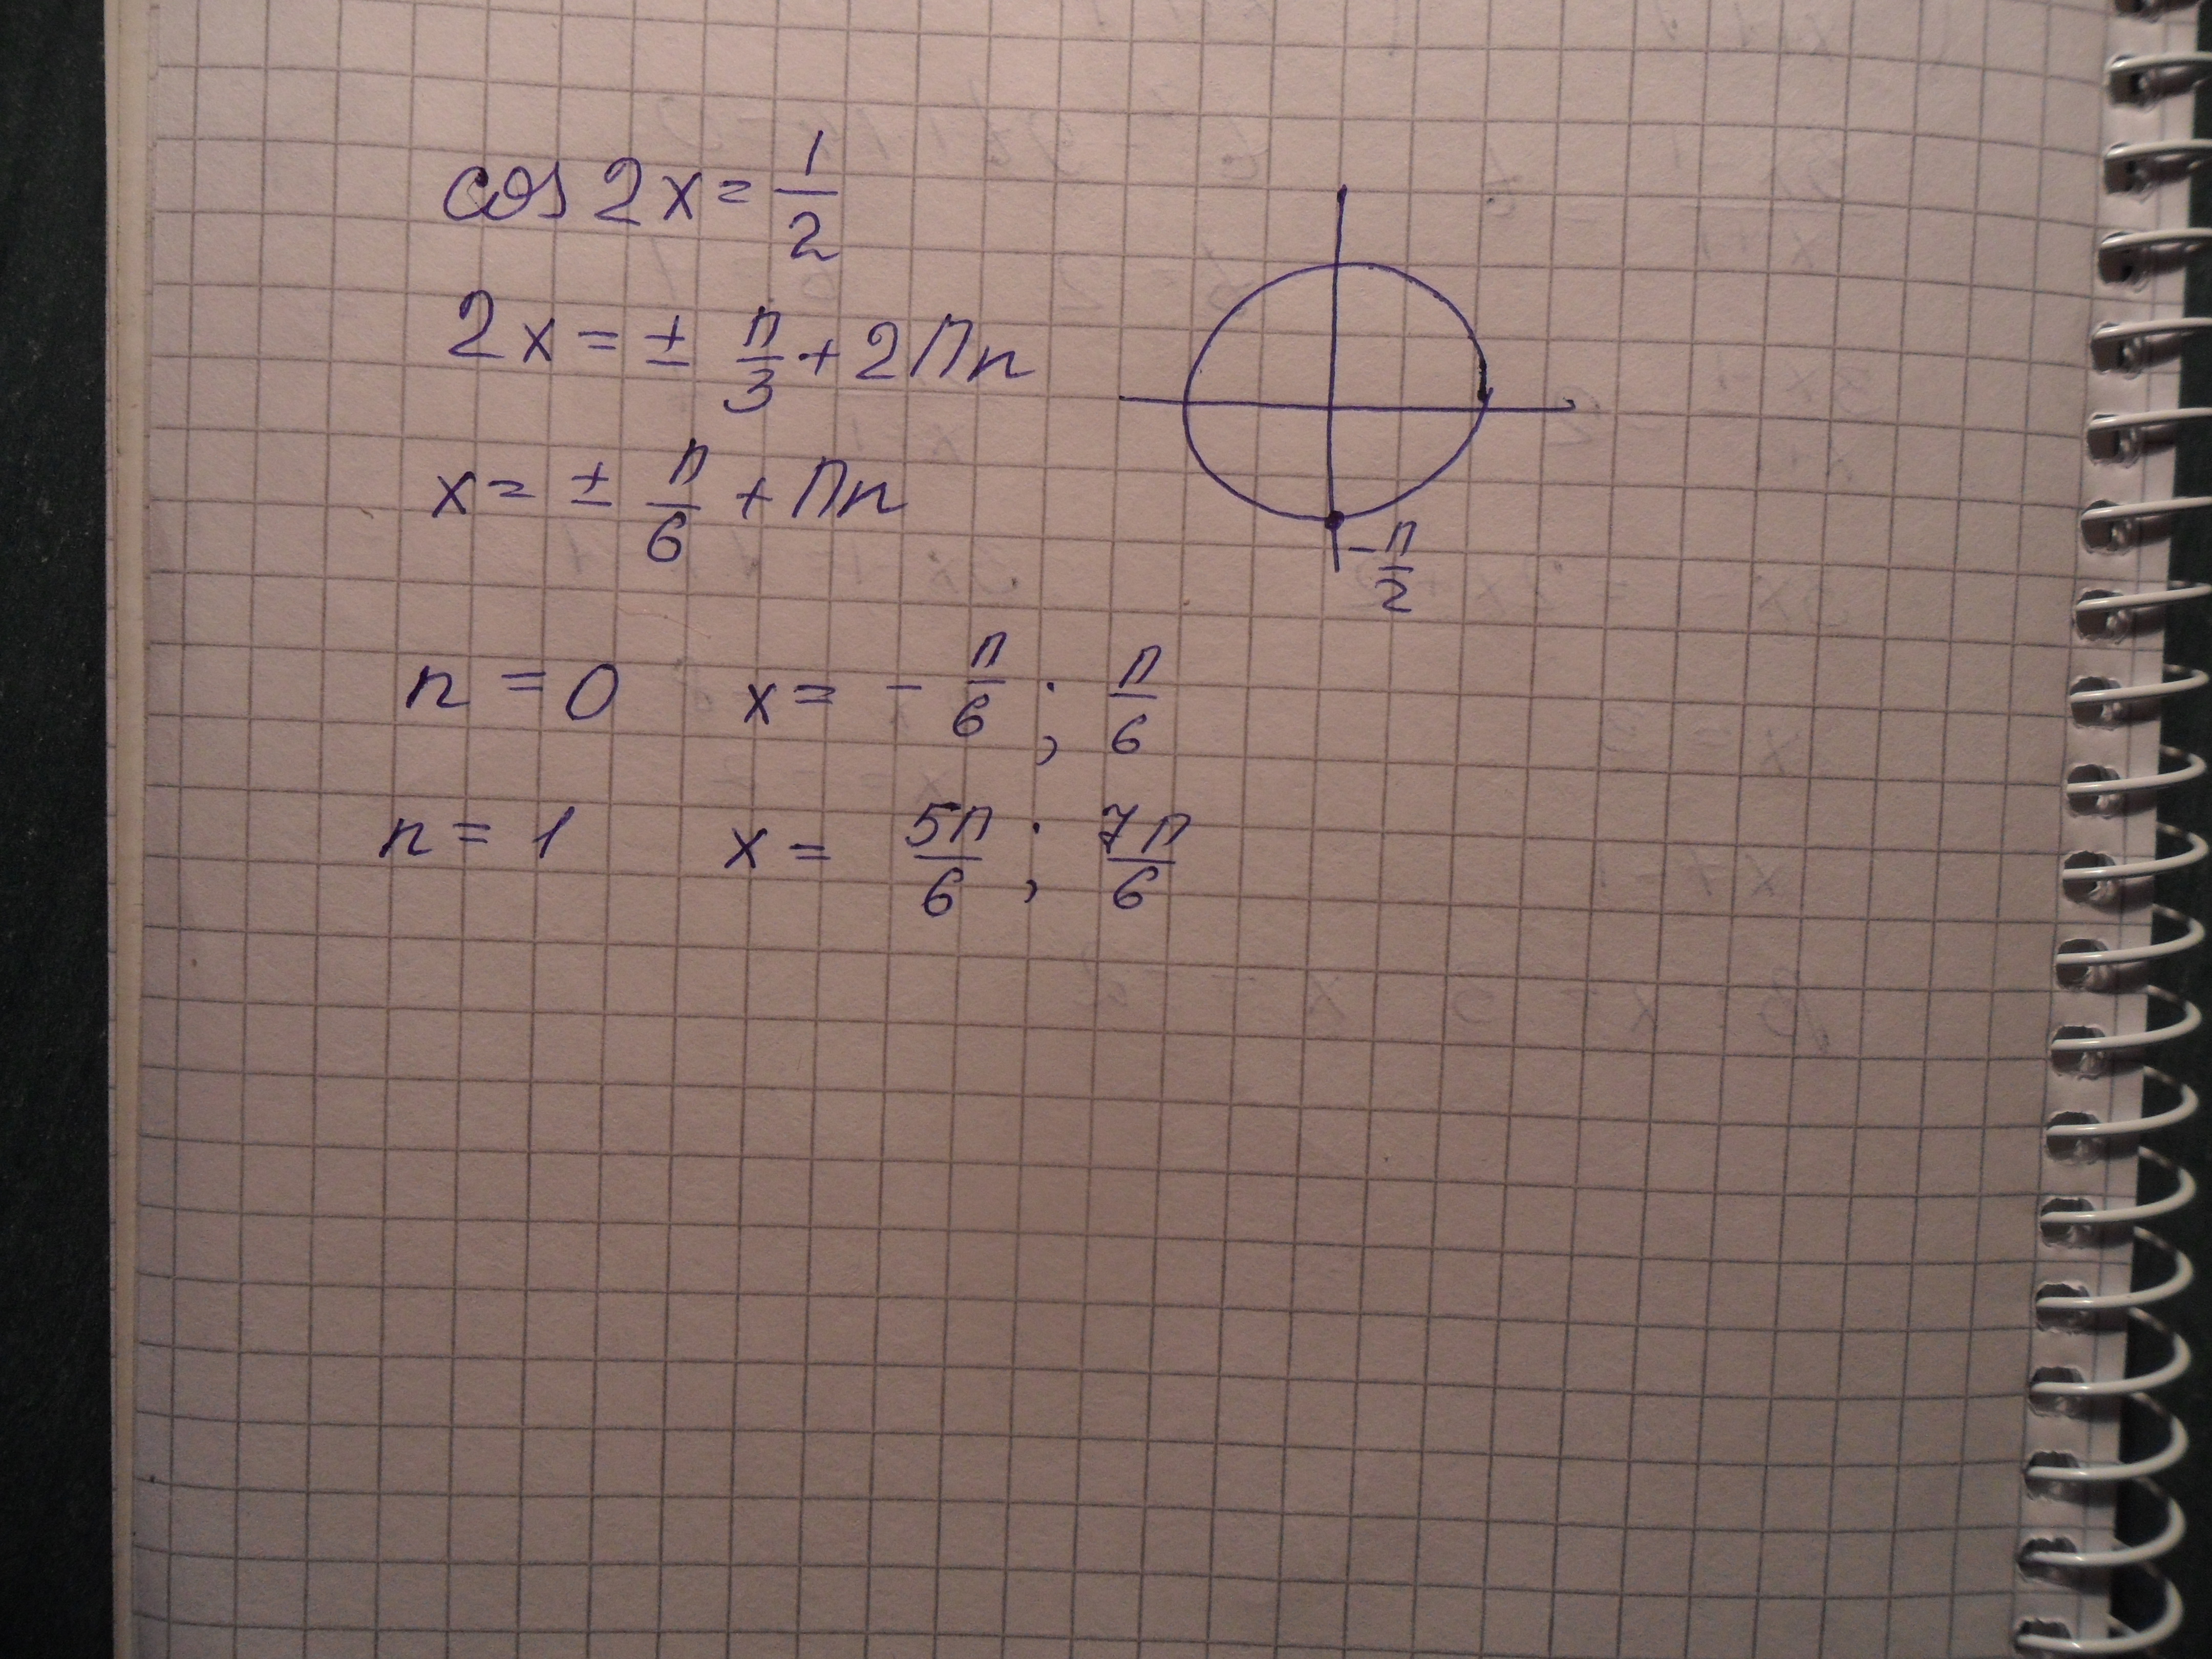 cos 2x = 1/2
2x = ± π/3 + 2πn
x = ± π/6 + πn
-π/2
n = 0 x = - π/6 ; π/6
n = 1 x = 5π/6 ; 7π/6